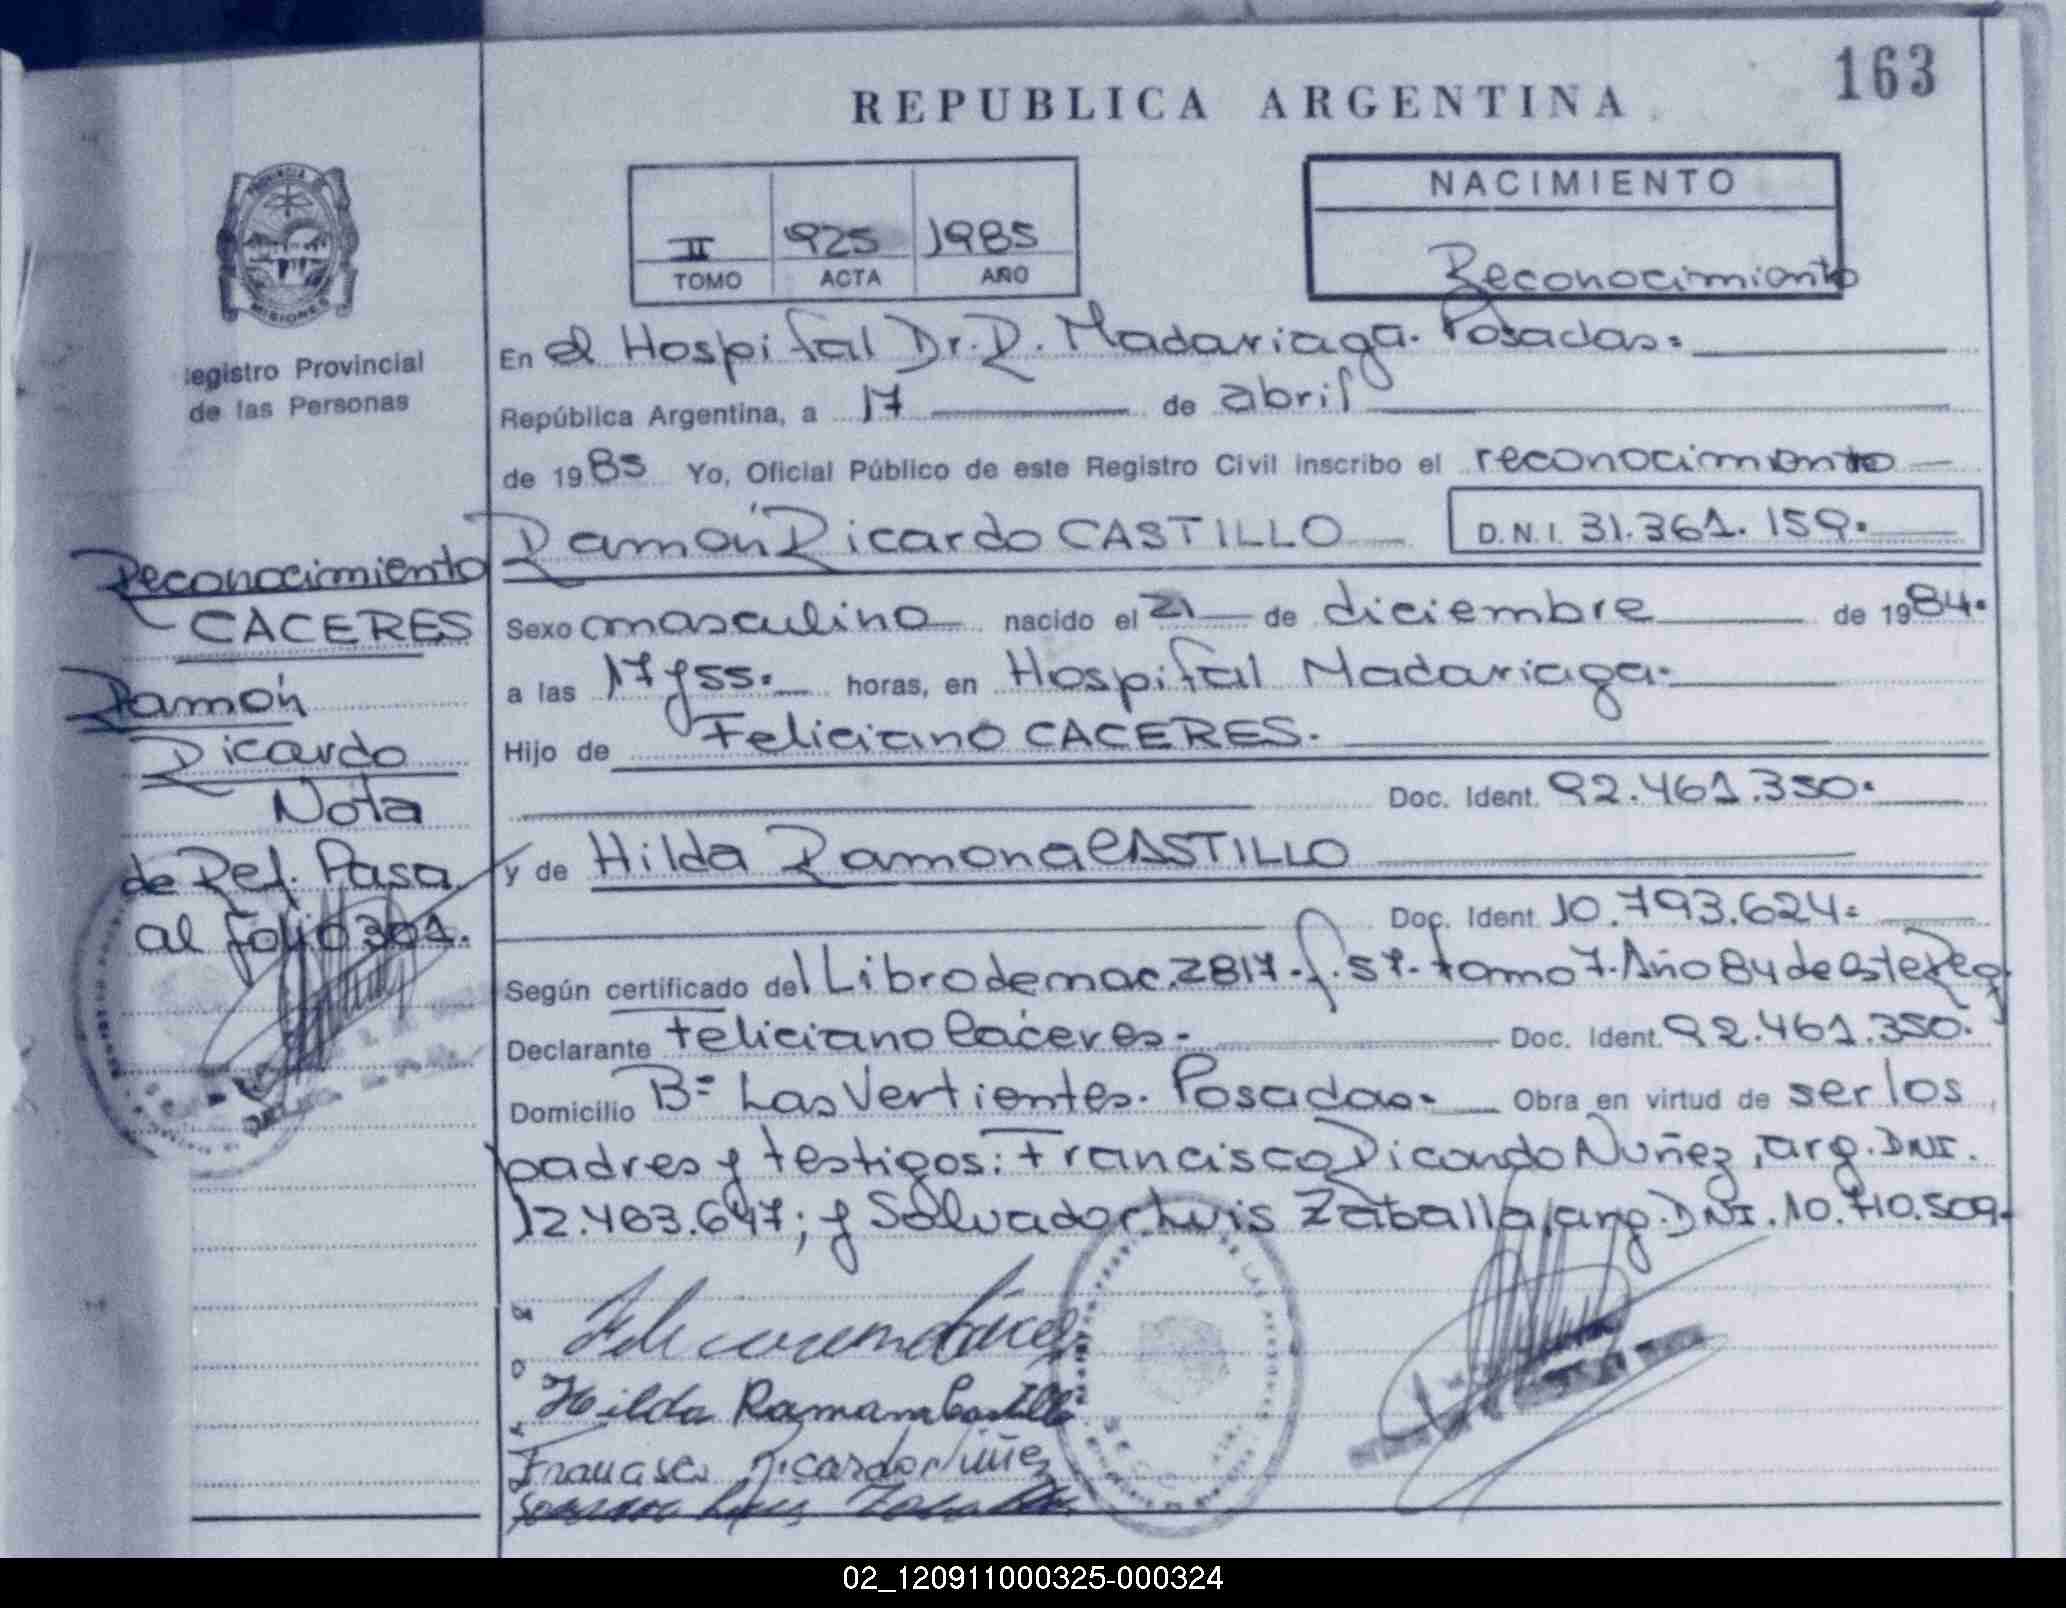 163
REPUBLICA ARGENTINA
PROVINCIA DE
MISIONES
II 925 1985
TOMO ACTA AÑO
NACIMIENTO
Reconocimiento
egistro Provincial
de las Personas
En el Hospital Dr. R. Madariaga. Posadas.
República Argentina, a 17 de abril
de 1985 Yo, Oficial Público de este Registro Civil inscribo el reconocimiento
Ramón Ricardo CASTILLO D.N.I. 31.361.159.
Sexo masculino nacido el 21 de diciembre de 1984.
a las 17 y 55. horas, en Hospital Madariaga.
Hijo de Feliciano CACERES.
Doc. Ident. 92.461.350.
y de Hilda Ramona CASTILLO
Doc. Ident. 10.793.624.
Según certificado del Libro de nac. 2817. f. 57. tomo 7. Año 84 de este Reg
Declarante Feliciano Cáceres. Doc. Ident. 92.461.350.
Domicilio Bº Las Vertientes. Posadas. Obra en virtud de ser los
padres y testigos: Francisco Ricardo Nuñez, arg. DNI.
12.463.647; y Salvador Luis Zaballa, arg. DNI. 10.710.509.
Reconocimiento
CACERES
Ramón
Ricardo
Nota
de Ref. Pasa
al folio 301.
Hilda Ramona Castillo
Francisco Ricardo Nuñez
02_120911000325-000324